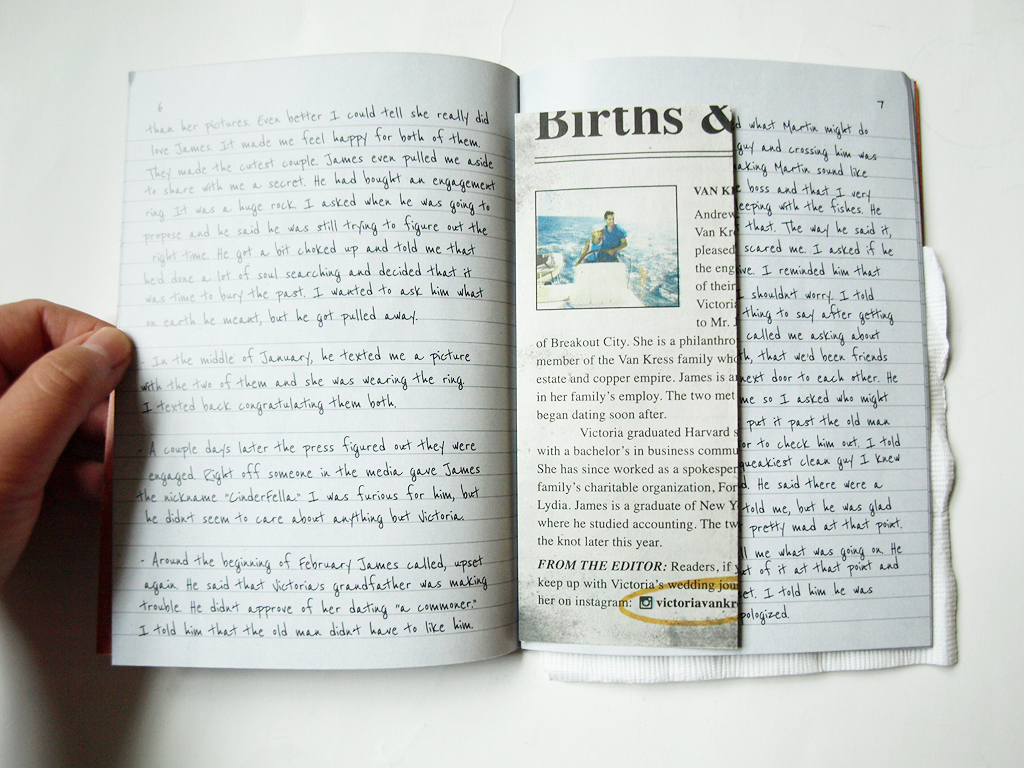 6
than her pictures. Even better I could tell she really did
love James. It made me feel happy for both of them.
They made the cutest couple. James even pulled me aside
to share with me a secret. He had bought an engagement
ring. It was a huge rock. I asked when he was going to
propose and he said he was still trying to figure out the
right time. He got a bit choked up and told me that
he'd done a lot of soul searching and decided that it
was time to bury the past. I wanted to ask him what
on earth he meant, but he got pulled away.
- In the middle of January, he texted me a picture
with the two of them and she was wearing the ring.
I texted back congratulating them both.
- A couple days later the press figured out they were
engaged. Right off someone in the media gave James
the nickname "Cinderfella." I was furious for him, but
he didnt seem to care about anything but Victoria.
- Around the beginning of February James called, upset
again. He said that Victoria's grandfather was making
trouble. He didn't approve of her dating "a commoner."
I told him that the old man didn't have to like him.
Births &
VAN
Andrew
Van
pleased
the
of their
Victoria
to Mr.
of Breakout City. She is a
member of the Van Kress family
estate and copper empire. James is
in her family's employ. The two met
began dating soon after.
Victoria graduated Harvard
with a bachelor's in business
She has since worked as a
family's charitable organization,
Lydia. James is a graduate of New
where he studied accounting. The
the knot later this year.
FROM THE EDITOR: Readers, if
keep up with Victoria's wedding
her on instagram: victoriavankr
7
what Martin might do
guy and crossing him was
making Martin sound like
boss and that I very
keeping with the fishes. He
that. The way he said it,
scared me. I asked if he
I reminded him that
I shouldnt worry. I told
thing to say after getting
called me asking about
that we'd been friends
next door to each other. He
me so I asked who might
put it past the old man
or to check him out. I told
squeakiest clean guy I knew
He said there were a
told me, but he was glad
pretty mad at that point.
me what was going on. He
of it at that point and
I told him he was
apologized.